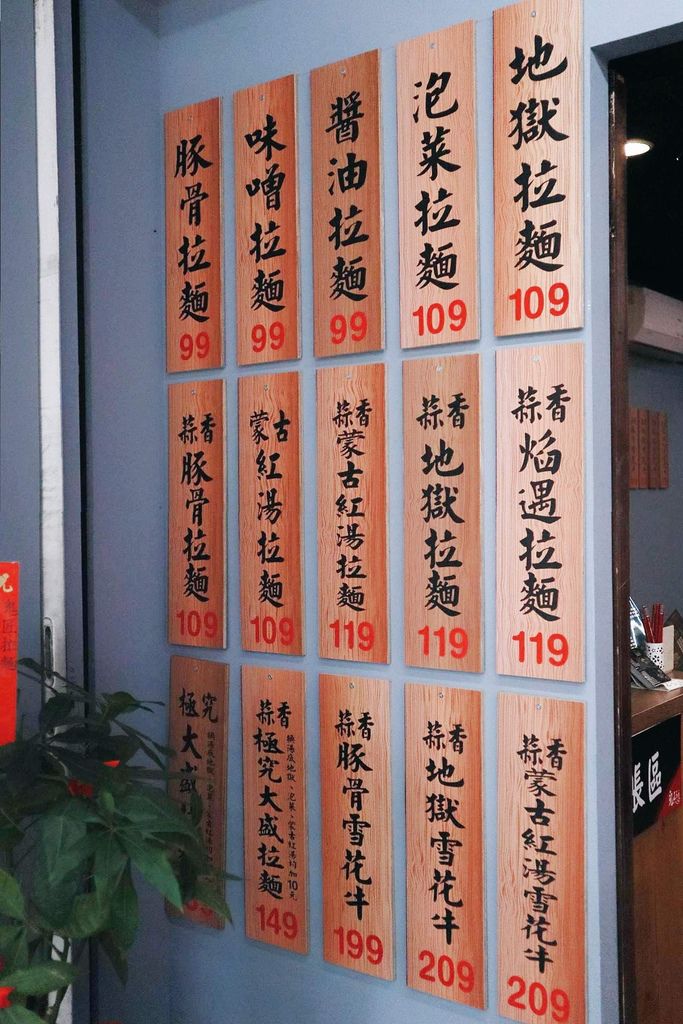 地獄拉麵
109
泡菜拉麵
109
醬油拉麵
99
味噌拉麵
99
豚骨拉麵
99
蒜香焰遇拉麵
119
蒜香地獄拉麵
119
蒜香蒙古紅湯拉麵
119
蒙古紅湯拉麵
109
蒜香豚骨拉麵
109
蒜香蒙古紅湯雪花牛
209
蒜香地獄雪花牛
209
蒜香豚骨雪花牛
199
蒜香極究大盛拉麵
換湯底地獄、泡菜、蒙古紅湯均加10元
149
極究大盛
鬼匠拉麵
區